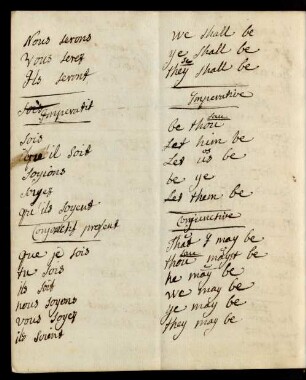 Nous serons
Vous serez
Ils seront
Imperatif
Sois
qu'il soit
Soyions
soyez
qu'ils soyent
Conjonctif present
Que je sois
tu sois
ils soit
nous soyons
vous soyez
ils soient
We shall be
ye shall be
they shall be
Imperative
be thou
Let him be
Let us be
be ye
Let them be
Conjunctive
That I may be
thou mayst be
he may be
we may be
ye may be
they may be